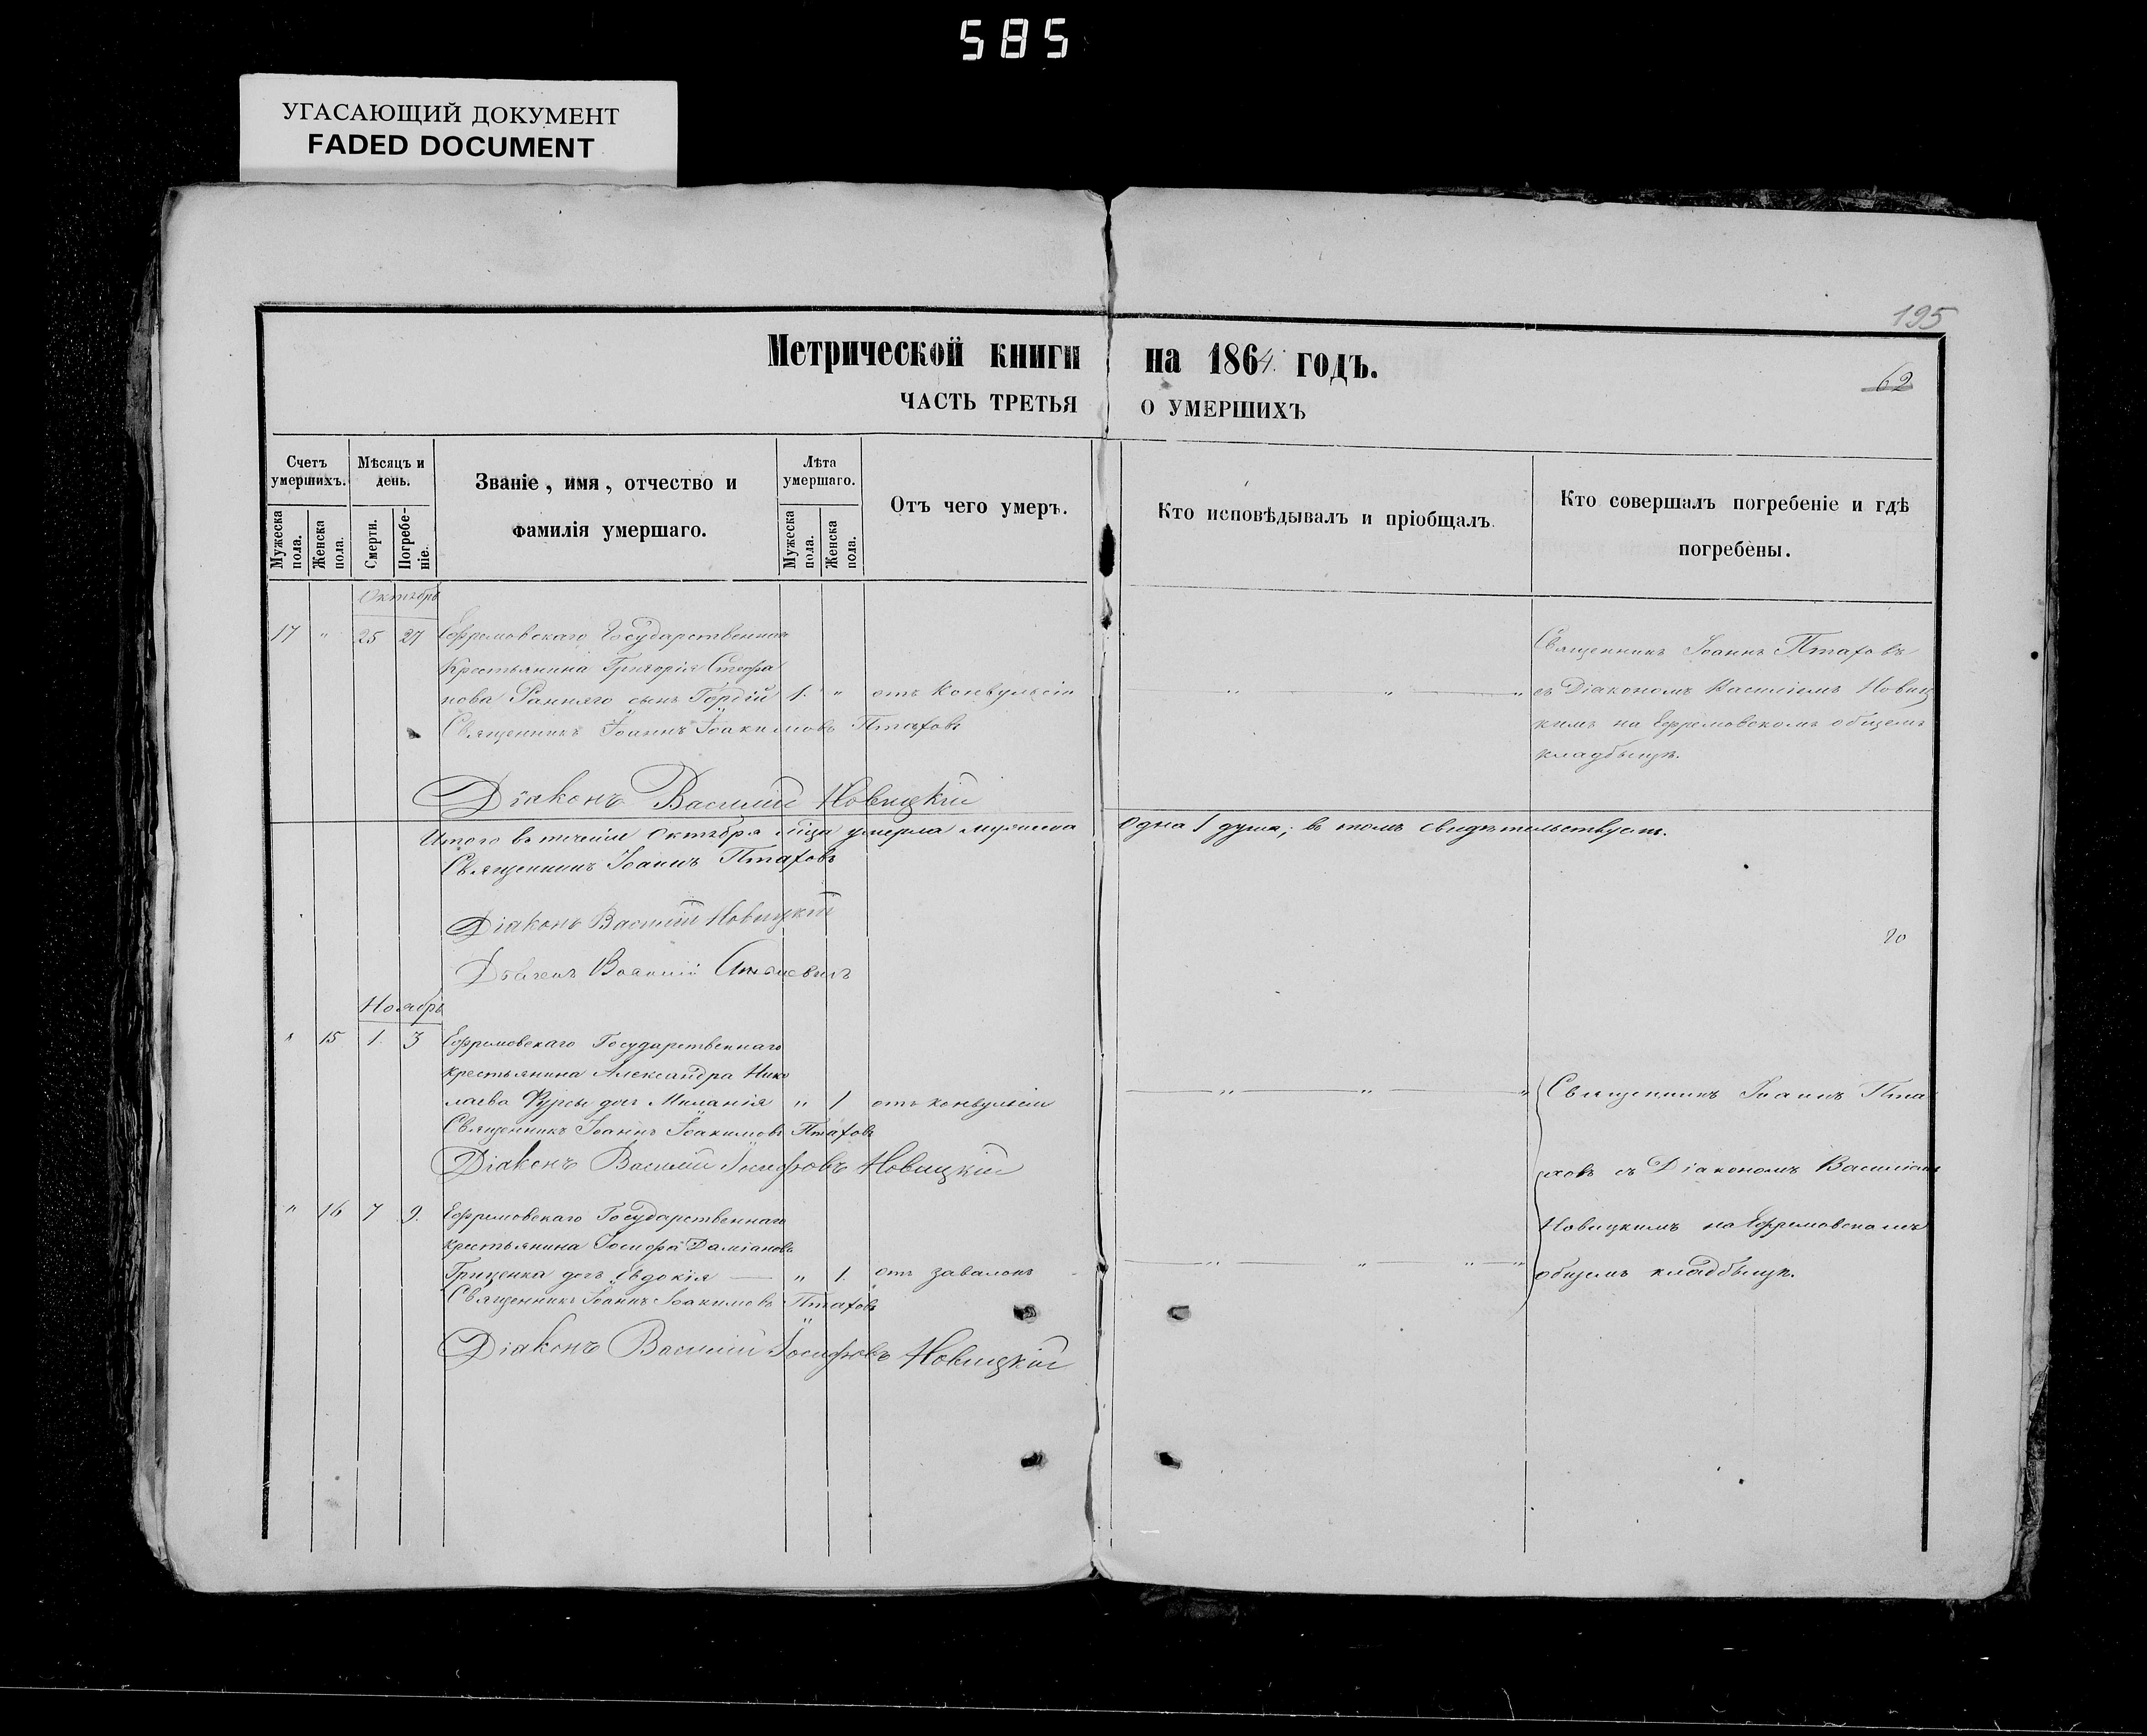 585
УГАСАЮЩИЙ ДОКУМЕНТ
FADED DOCUMENT
195
Метрической книги на 1864. годъ.
62
ЧАСТЬ ТРЕТЬЯ О УМЕРШИХЪ
Счетъ умершихъ.
Мужеска пола.
Женска пола.
Мѣсяцъ и день.
Смерти.
Погребе-ніе.
Званіе, имя, отчество и
фамилія умершаго.
Лѣта умершаго.
Мужеска пола.
Женска пола.
Отъ чего умеръ.
Кто исповѣдывалъ и пріобщалъ.
Кто совершалъ погребеніе и гдѣ
погребены.
Октябрь
17 " 25 27 Ефремовскаго Государственнаго
Крестьянина Григорія Стефа
нова Ранняго сынъ Гордій 1. " отъ конвульсіи " " "
Священникъ Іоаннъ Іоакимовъ Птаховъ
Діаконъ Василій Новицкій
Священникъ Іоаннъ Птаховъ
съ Діакономъ Василіемъ Новиц
кимъ на Ефремовскомъ общемъ
кладбыщѣ.
Итого въ теченіи Октября мѣца умерла мужеска одна 1 душа; въ томъ свидѣтельствуемъ.
Священникъ Іоаннъ Птаховъ
Діаконъ Василій Новицкій
20
Ноябрь
" 15 1. 3 Ефремовскаго Государственнаго
крестьянина Александра Нико
лаева Фурсы дочь Миланія " 1 отъ конвульсіи " " "
Священникъ Іоаннъ Іоакимовъ Птаховъ
Діаконъ Василій Іосифовъ Новицкій
" 16 7 9. Ефремовскаго Государственнаго
крестьянина Іосифа Даміанова
Гриценка дочь Евдокія " 1. отъ завалокъ " " " "
Священникъ Іоаннъ Іоакимовъ Птаховъ
Діаконъ Василій Іосифовъ Новицкій
Священникъ Іоаннъ Пта
ховъ съ Діакономъ Василіемъ
Новицкимъ на Ефремовскомъ
общемъ кладбыщѣ.